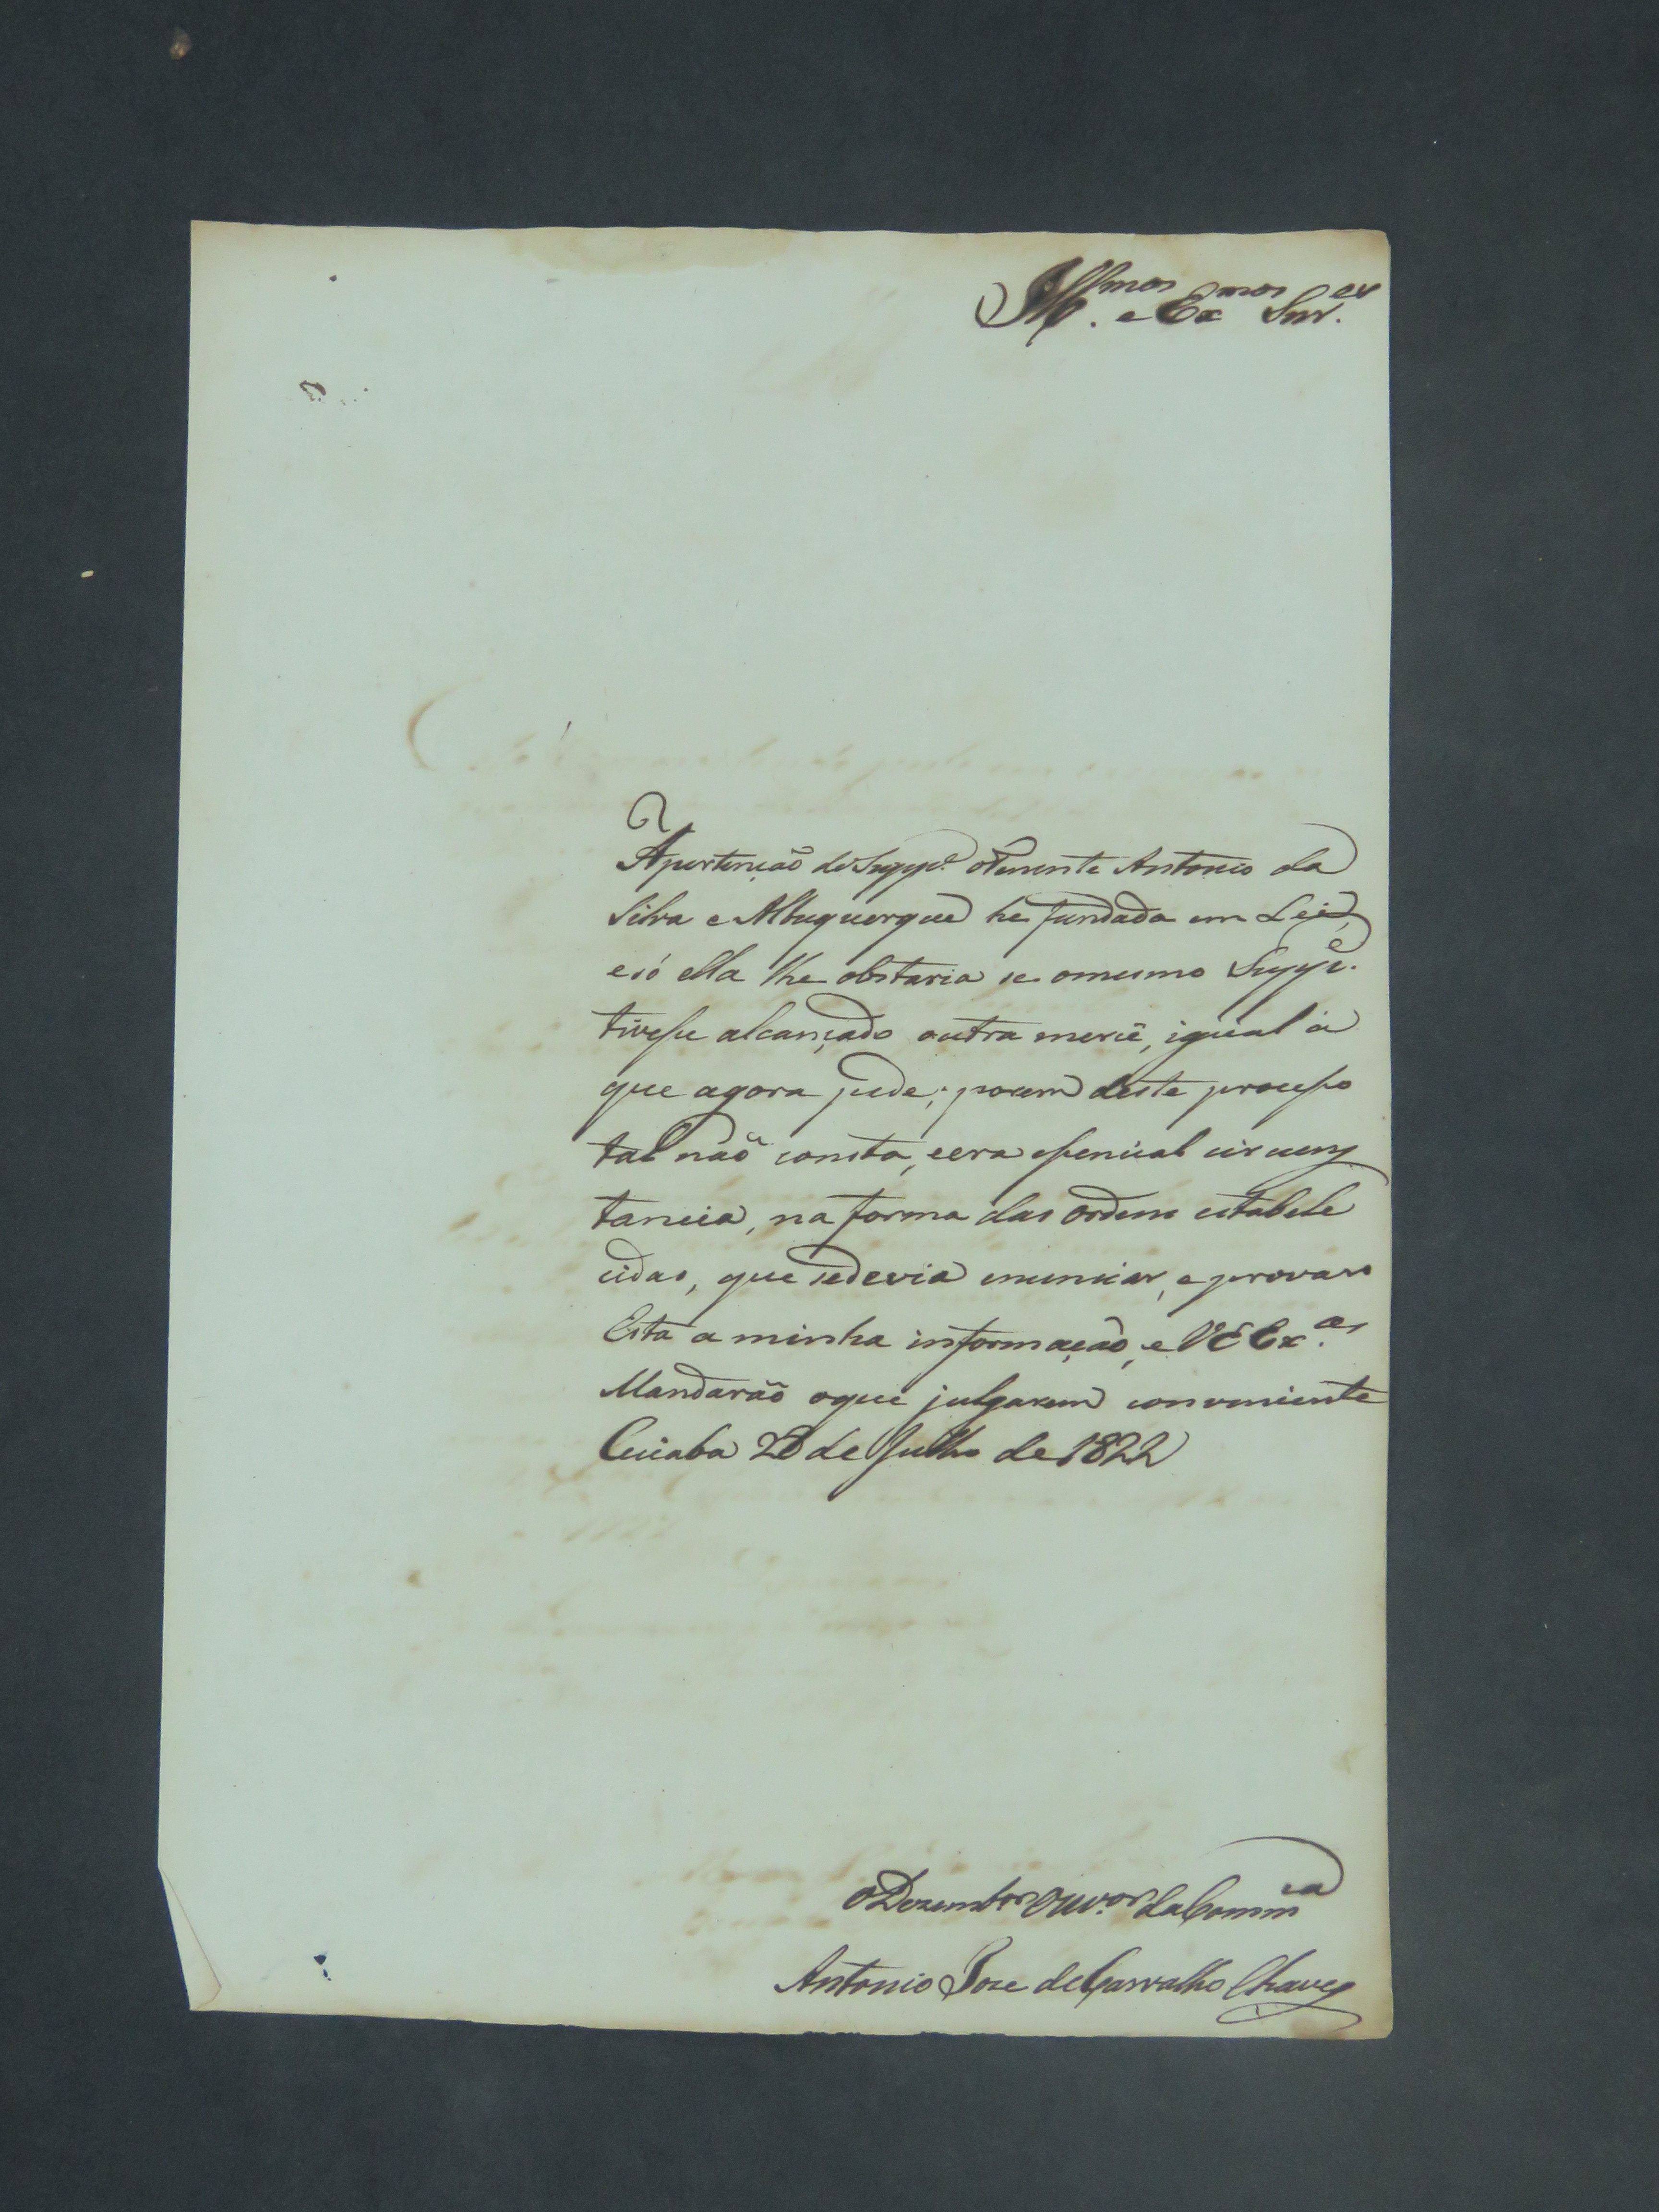 Ill.mos e Exmos Snr.es
A pertenção do Supp.e o Tenente Antonio da
Silva e Albuquerque he fundada em Lei,
e só ella lhe obstaria se o mesmo Supp.e
tivesse alcançado outra mercê, igual á
que agora pede; porem deste processo
tal não consta, e era essencial circuns
tancia, na forma das ordens estabele
cidas, que se devia enunciar, e provar
Esta a minha informação, e VEEx.as
Mandarão o que julgarem conveniente
Cuiaba 20 de Julho de 1822
O Dezembor Ouv.or da Commca
Antonio Jose de Carvalho Chaves